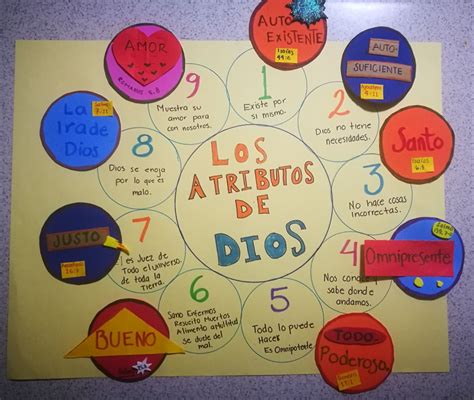 LOS
ATRIBUTOS
DE
DIOS
AUTO
EXISTENTE
1
Existe por
si mismo.
AUTO-
SUFICIENTE
2
Dios no tiene
necesidades.
Santo
3
No hace cosas
incorrectas.
Omnipresente
4
Nos conoce y
sabe donde
andamos.
TODO
Poderoso.
5
Todo lo puede
Hacer.
Es Omnipotente.
BUENO
6
Sano Enfermos
Resucito Muertos
Alimento aptultitud
se duele del
mal.
JUSTO
7
Es Juez de
Todo el universo
de toda la
Tierra.
La
Ira de
Dios
Salmo
7:11
8
Dios se enoja
por lo que es
malo.
AMOR
ROMANOS 5:8
9
Muestra su
amor para
con nosotros.